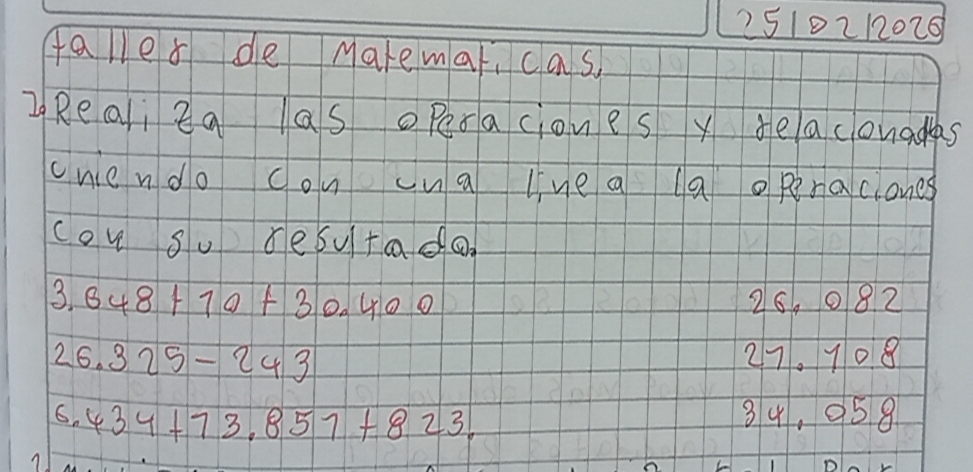 25/02/2026
taller de Matematicas.
1. Realiza las operaciones y relacionadas
uniendo con una linea la operaciones
con su resultado.
3.648+10+30.400 26.082
26.325-243 21.108
6.434+13.851+823. 34.058